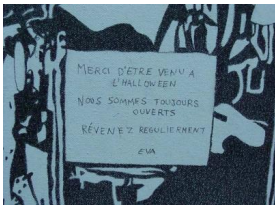 MERCI D'ÊTRE VENU A
L'HALLOWEEN
NOUS SOMMES TOUJOURS
OUVERTS
RÉVENEZ REGULIERMENT
EVA